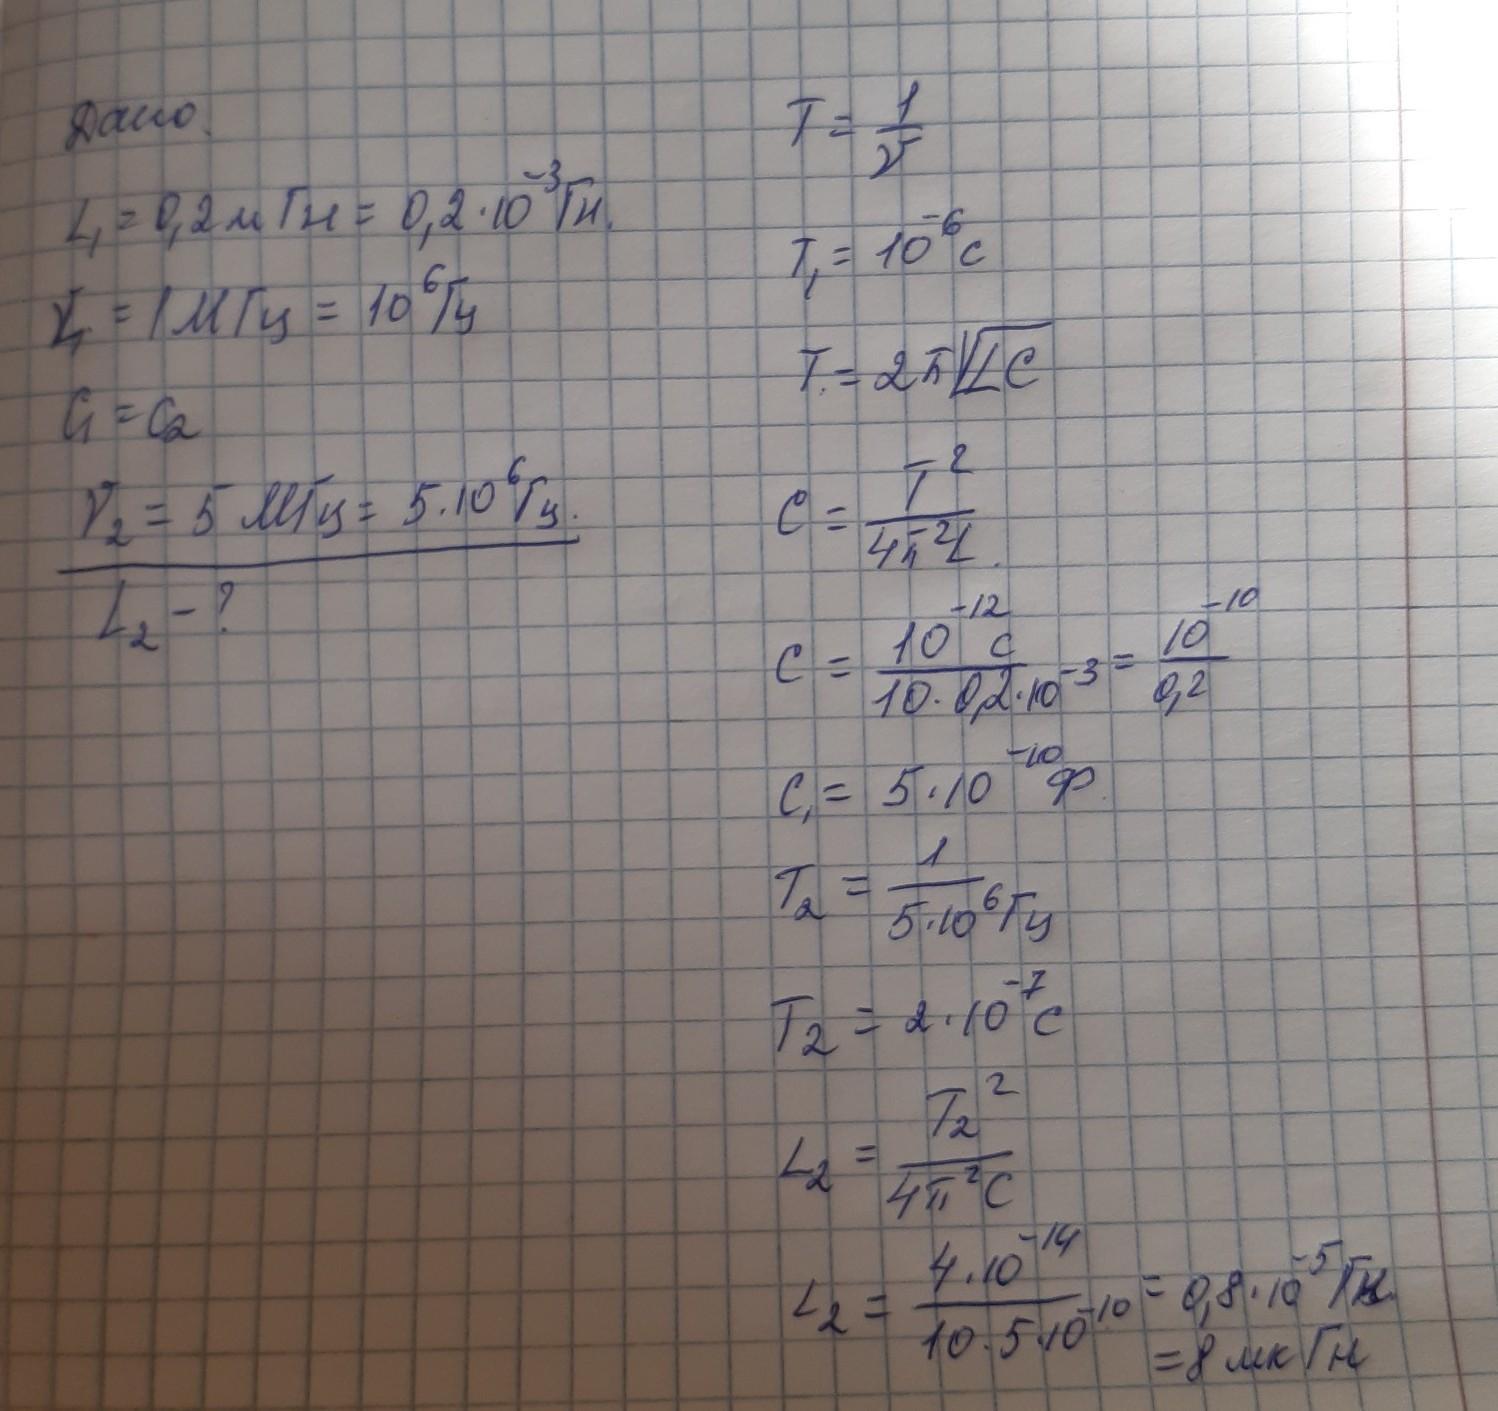 Дано.
L₁ = 0,2 мГн = 0,2·10⁻³Гн.
ν₁ = 1 МГц = 10⁶Гц
C₁ = C₂
ν₂ = 5 МГц = 5·10⁶Гц.
L₂ - ?
T = 1/ν
T₁ = 10⁻⁶с
T = 2π√LC
C = T²/4π²L.
C = 10⁻¹² с/10·0,2·10⁻³ = 10⁻¹⁰/0,2
C₁ = 5·10⁻¹⁰ Ф.
T₂ = 1/5·10⁶Гц
T₂ = 2·10⁻⁷с
L₂ = T₂²/4π²C
L₂ = 4·10⁻¹⁴/10·5·10⁻¹⁰ = 0,8·10⁻⁵Гн.
= 8 мкГн